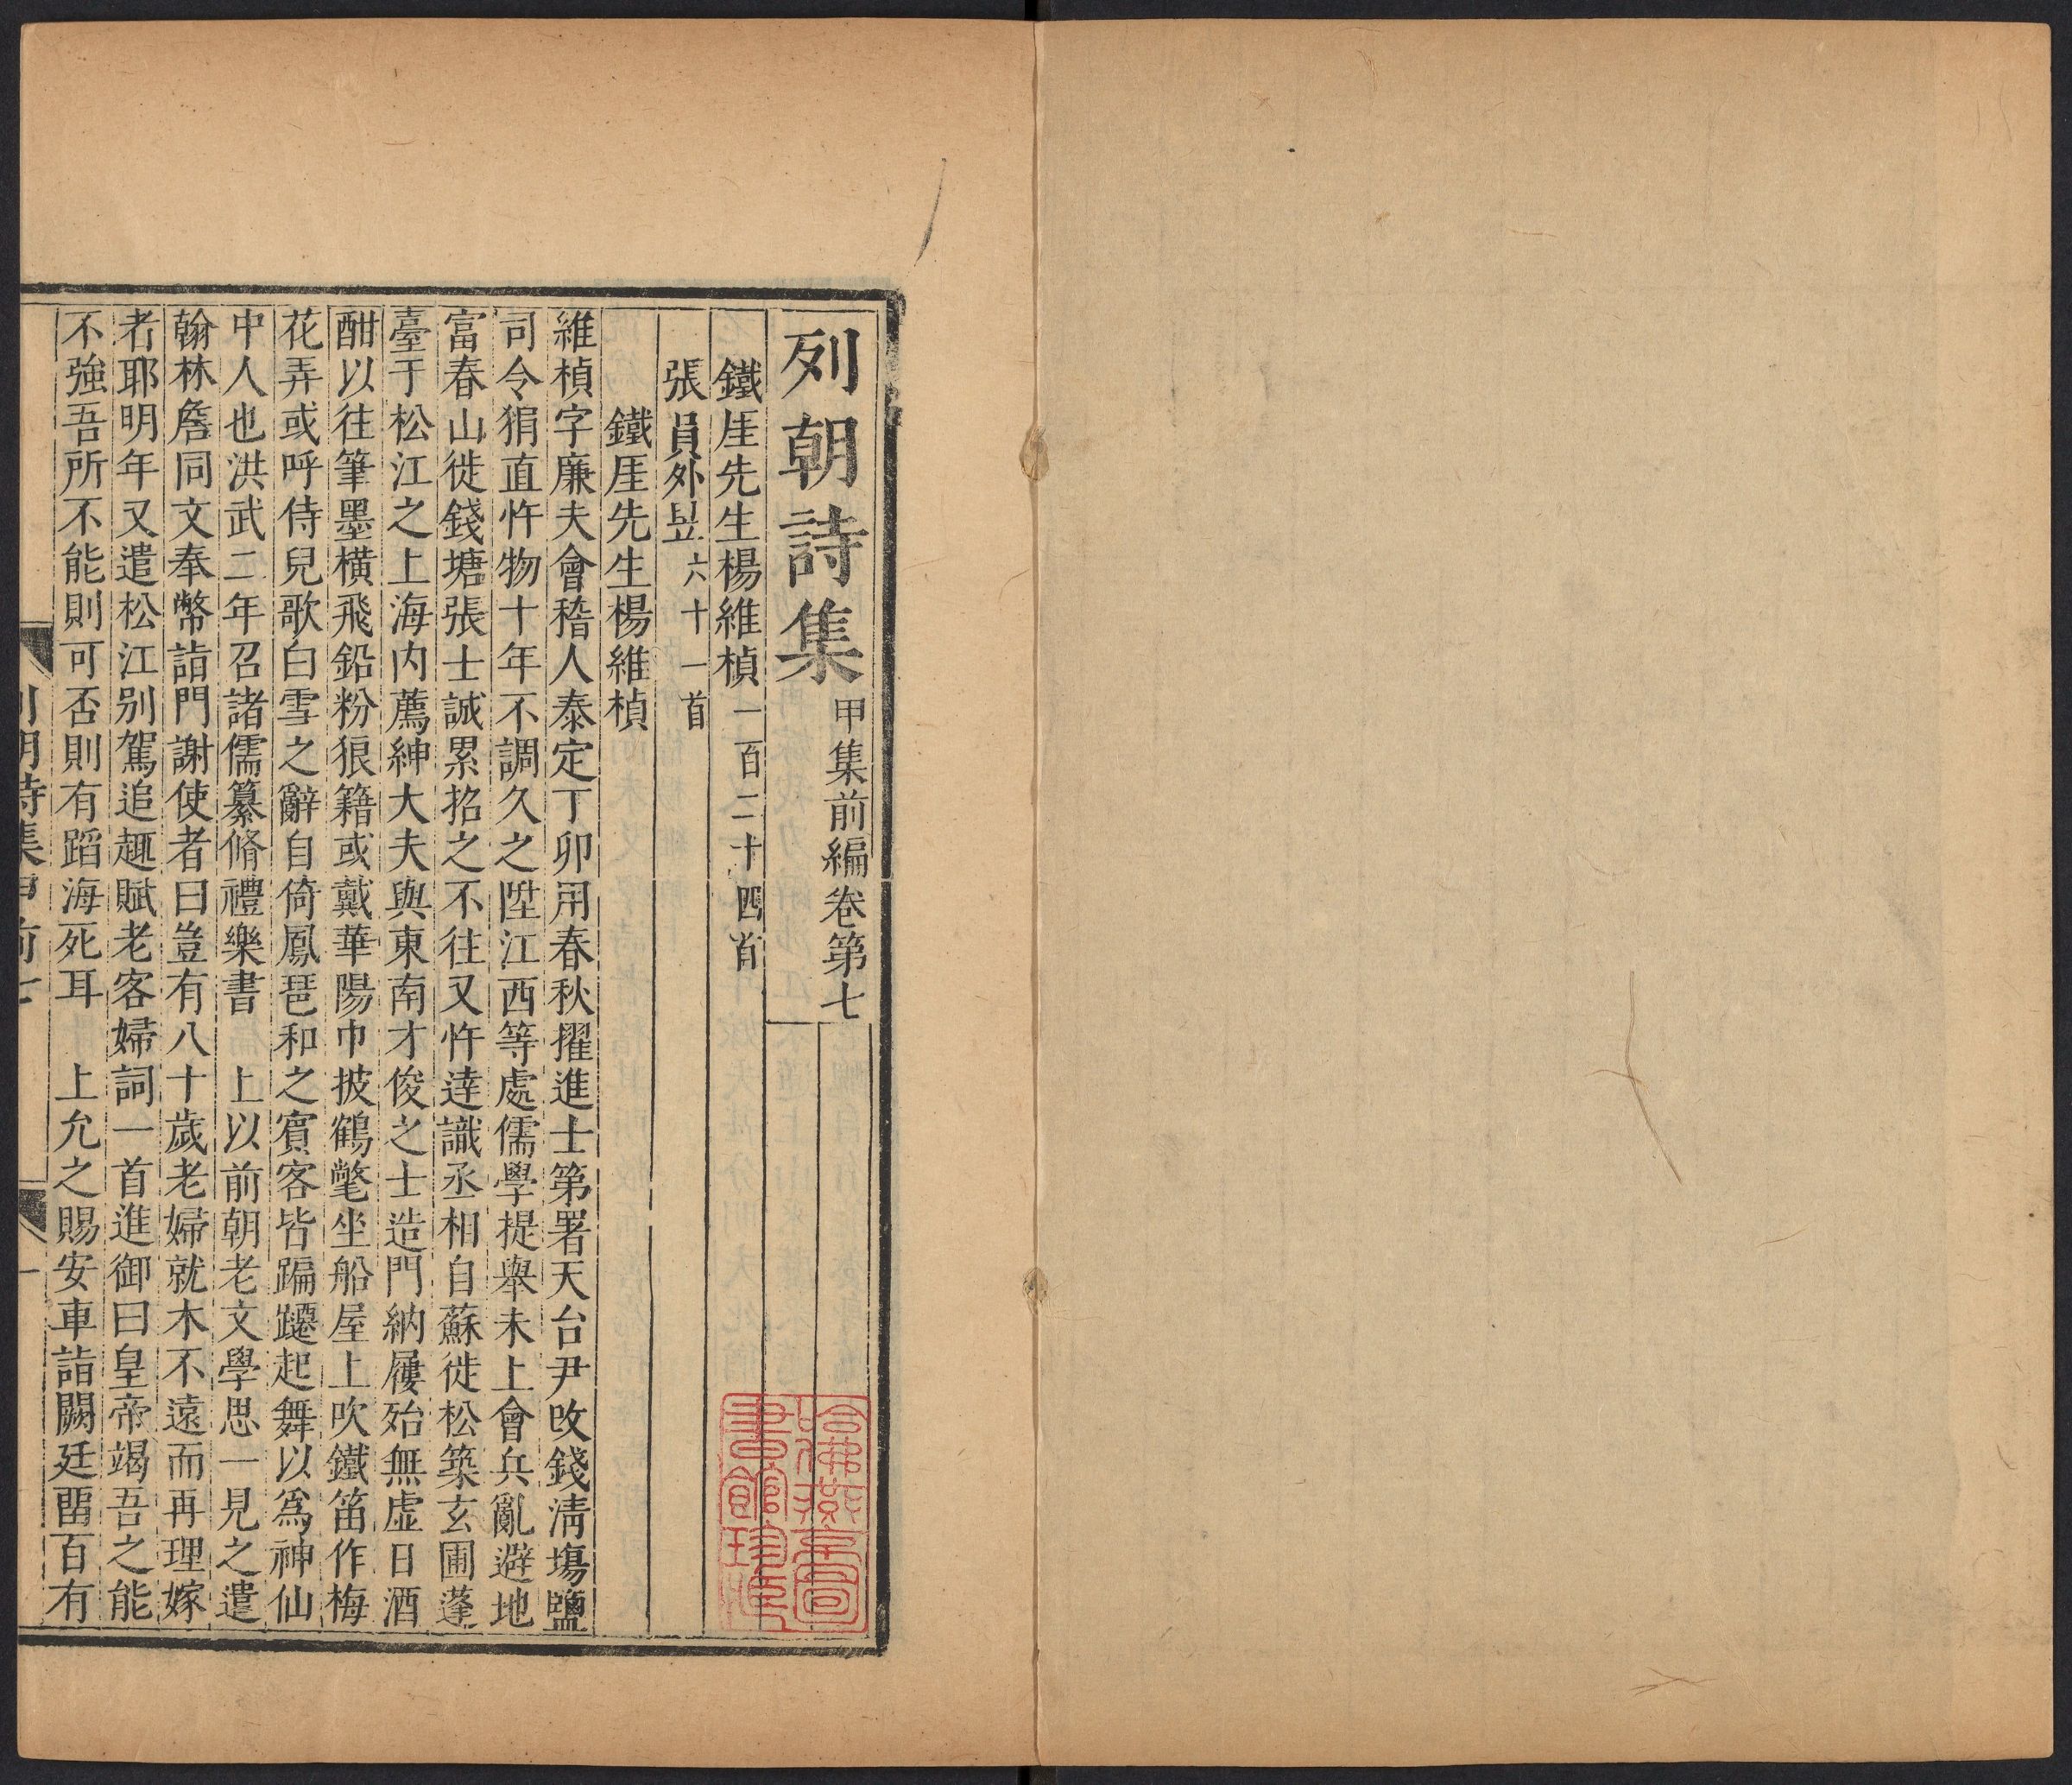 列朝詩集甲集前編卷第七
鐵厓先生楊維楨一百二十四首
張員外昱六十一首
鐵厓先生楊維楨
維楨字廉夫會稽人泰定丁卯用春秋擢進士第署天台尹改錢淸塲鹽
司令狷直忤物十年不調久之陞江西等處儒學提舉未上會兵亂避地
富春山徙錢塘張士誠累招之不往又忤逹識丞相自蘇徙松築玄圃蓬
臺于松江之上海内薦紳大夫與東南才俊之士造門納屨殆無虚日酒
酣以往筆墨橫飛鉛粉狼籍或戴華陽巾披鶴氅坐船屋上吹鐵笛作梅
花弄或呼侍兒歌白雪之辭自倚鳳琶和之賓客皆蹁躚起舞以爲神仙
中人也洪武二年召諸儒纂脩禮樂書 上以前朝老文學思一見之遣
翰林詹同文奉幣詣門謝使者曰豈有八十歲老婦就木不遠而再理嫁
者耶明年又遣松江别駕追趣賦老客婦詞一首進御曰皇帝竭吾之能
不強吾所不能則可否則有蹈海死耳 上允之賜安車詣闕廷留百有
列朝詩集甲前七
一
哈佛燕京圖書館珍藏